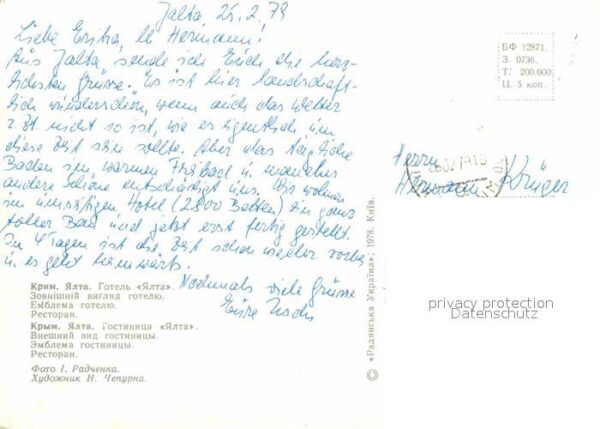 Jalta, 25.2.79
Liebe Erika, lb Hermann!
Aus Jalta sende ich Euch die herz-
lichsten Grüsse. Es ist hier landschaft-
lich wunderschön, wenn auch das Wetter
z. Zt. nicht so ist, wie es eigentlich um
diese Zeit sein sollte. Aber das tägliche
Baden im warmen Freibad u. manches
andere Schöne entschädigt uns. Wir wohnen
im Hotel (2800 Betten) Ein ganz
toller Bau und jetzt erst fertig gestellt.
In 4 Tagen ist die Zeit schon wieder vorbei
u. es geht heimwärts.
Nochmals viele Grüsse
Eure
БФ 12871.
З. 0736.
Т. 200.000
Ц. 5 коп.
Herrn
Hermann Krüger
Крим. Ялта. Готель «Ялта».
Зовнішній вигляд готелю.
Емблема готелю.
Ресторан.
Крым. Ялта. Гостиница «Ялта».
Внешний вид гостиницы.
Эмблема гостиницы.
Ресторан.
Фото І. Радченка.
Художник Н. Чепурна.
© «Радянська Україна», 1978. Київ.
privacy protection
Datenschutz